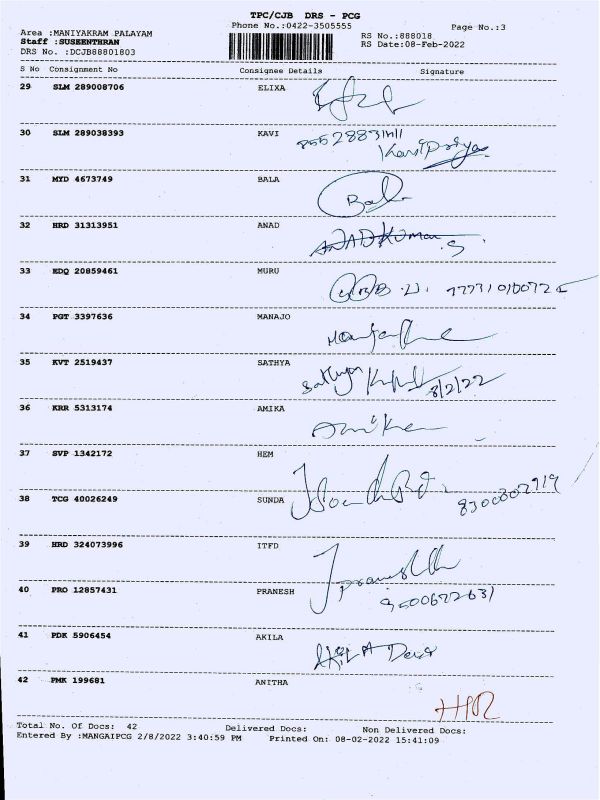 TPC/CJB DRS - PCG
Phone No.:0422-3505555 Page No.:3
Area :MANIYAKRAM PALAYAM
Staff :SUSEENTHRAN
DRS No. :DCJB88801803
RS No.:888018
RS Date:08-Feb-2022
S No Consignment No Consignee Details Signature
29 SLM 289008706 ELIXA
30 SLM 289038393 KAVI
Kavipriya
31 MYD 4673749 BALA
Bala
32 HRD 31313951 ANAD
ANADKumar S
33 EDQ 20859461 MURU
34 PGT 3397636 MANAJO
35 KVT 2519437 SATHYA
Sathya 8/2/22
36 KRR 5313174 AMIKA
Amika
37 SVP 1342172 HEM
38 TCG 40026249 SUNDA
39 HRD 324073996 ITFD
40 PRO 12857431 PRANESH
9500672631
41 PDK 5906454 AKILA
AKILA Devi
42 PMK 199681 ANITHA
Total No. Of Docs: 42 Delivered Docs: Non Delivered Docs:
Entered By :MANGAIPCG 2/8/2022 3:40:59 PM Printed On: 08-02-2022 15:41:09